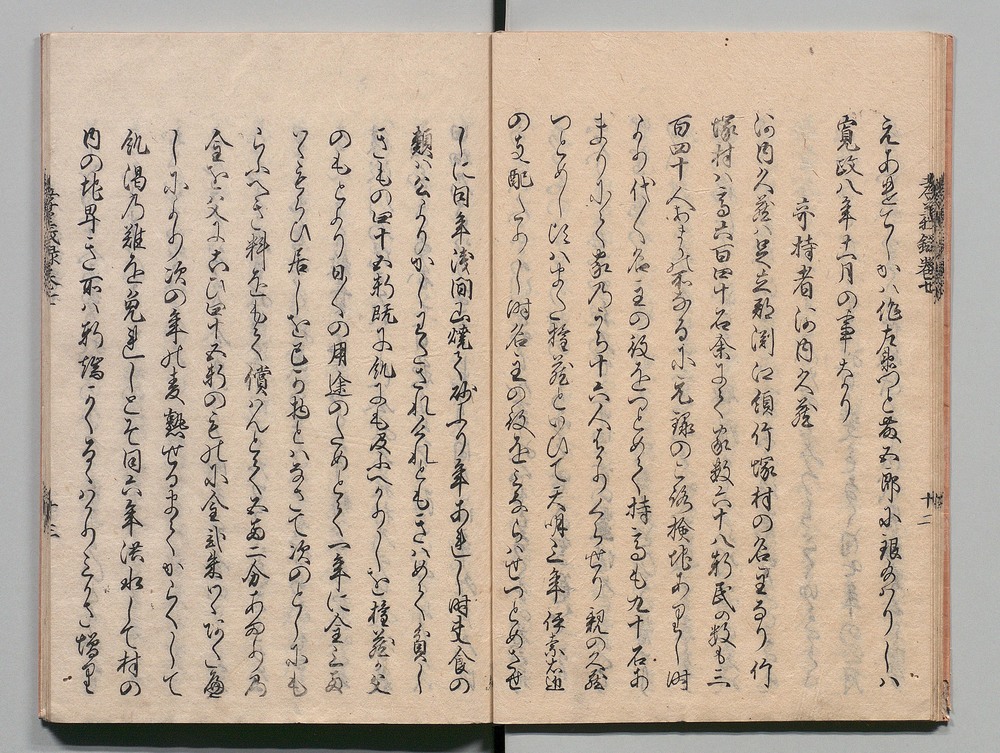 えあをてしかハ作左衛門と藤五郎に銀多ハりしハ
寛政八年十一月の事なり
奇特者河内久蔵
河内久蔵ハ足立郡渕江領竹塚村の名主なり竹
塚村ハ高六百四十石余にて家数六十八軒民の数も三
百四十人あまり在なるに元禄のころ検地ありし時
より代々名主の役をつとめて持高も九十石あ
まりにて家のうち十六人はかりくらせり親の久蔵
つとめし頃ハまた権蔵といひて天明三年伊奈右近
の支配たりし時名主の役をみならハせつとめさせ
しに同年浅間山焼て砂ふり年あれし時夫食の
類ハ公よりかし下されけれともさハめて貧し
きもの四十五軒既に飢にも及ふへかりしを権蔵か父
のもとより日々の用途のためとて一年に金三両
つゝもらひ居しを己か物とハなさて次のとしにも
らふへき料をもて償ハんとて五両二分ありつるの
金を父にこひ四十五軒のものに金弐朱つゝあたへ
しにより次の年の麦熟せるまてからくして
飢渇の難を免れしとそ同六年洪水して村の
内の地卑き所ハ軒端かくるゝハかりみかさ増り
孝義録巻七
十二